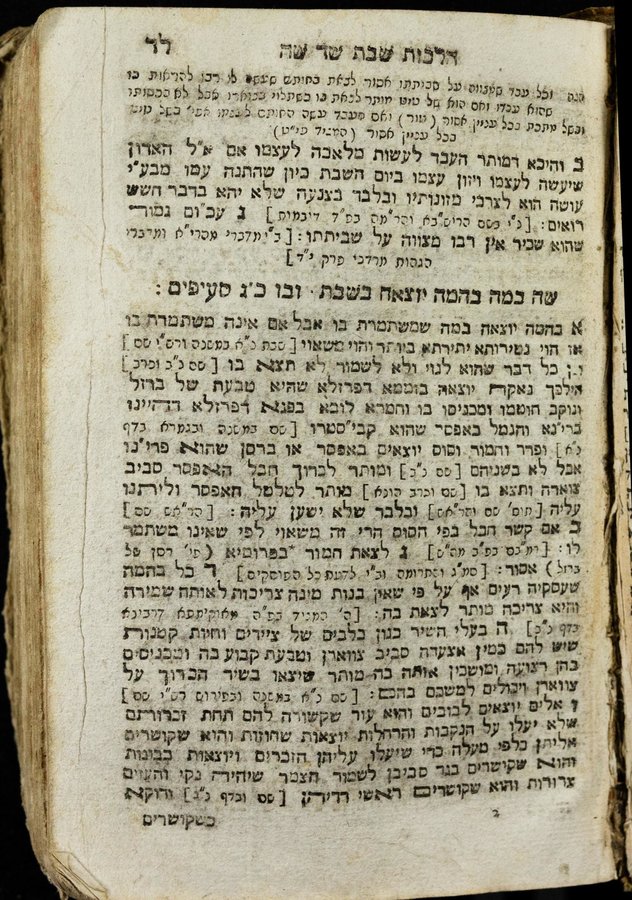 הלכות שבת שד שה לד
הגה וכל עבד שמצווה על שביתתו אסור לצאת בחותם שעשה לו רבו להראות בו
שהוא עבדו ואם הוא של טיט מותר לצאת בו כשתלוי בצוארו אבל לא בכסותו
ובשל מתכת בכל ענין אסור (טור) ואם העבד עשה החותם לעצמו אפי' בשל טיט
בכל ענין אסור (המגיד פי"ט)
ב והיכא דמותר העבד לעשות מלאכה לעצמו אם א"ל האדון
שיעשה לעצמו ויזון עצמו ביום השבת כיון שהתנה עמו מבע"י
עושה הוא לצרכי מזונותיו ובלבד בצנעה שלא יהא בדבר חשש
רואים: [נ"י בשם הרשב"א והר"מה בפ"ד דיבמות] ג עכ"ום גמור
שהוא שכיר אין רבו מצווה על שביתתו: [ב"י מדברי מהרי"א ומדברי
הגהות מרדכי פרק י"ד]
שה במה בהמה יוצאה בשבת · ובו כ"ג סעיפים:
א בהמה יוצאה במה שמשתמרת בו אבל אם אינה משתמרת בו
או הוי נטירותא יתירתא ביותר והוי משאוי [שבת נ"א במשנה ורש"י שם]
וכן כל דבר שהוא לנוי ולא לשמור לא תצא בו [שם נ"ב וברב]
הילכך נאקה יוצאה בזממא דפרזלא שהיא טבעת של ברזל
ונוקב חוטמו ומכניסו בו וחמרא לובא בפגא דפרזלא דהיינו
ברי"נא והגמל באפסר שהוא קבי"סטרו [שם במשנה ובגמרא בדף
נ"א] ופרד וחמור וסוס יוצאים באפסר או ברסן שהוא פרי"נו
אבל לא בשניהם [שם נ"ב] ומותר לכרוך חבל האפסר סביב
צוארה ותצא בו [שם וכרב הונא] מותר לטלטל האפסר וליתנו
עליה [תוס' שם והרא"ש] ובלבד שלא ישען עליה: [הרא"ש שם]
ב אם קשר חבל בפי הסוס הרי זה משאוי לפי שאינו משתמר
לו: [רמב"ם בפ"כ מה"ש] ג לצאת חמור בפרומיא (פי' רסן של
ברזל) אסור: [סמ"ג והתרומה וב"י לדעת כל הפוסקים] ד כל בהמה
שעסקיה רעים אף על פי שאין בנות מינה צריכות לאותה שמירה
והיא צריכה מותר לצאת בה: [ה' המגיד בפ"ה מאוקימתא דרבינא
בדף נ"ב] ה בעלי השיר כגון כלבים של ציירים וחיות קטנות
שיש להם כמין אצעדה סביב צווארן וטבעת קבוע בה ומכניסים
בהן רצועה ומושכין אותה בה מותר שיצאו בשיר הכרוך על
צווארן ויכולים למשכם בהם: [שם נ"א במשנה ובפירוש רש"י שם]
ו אלים יוצאים לבובים והוא עור שקשורה להם תחת זכרותם
שלא יעלו על הנקבות והרחלות יוצאות שחוזות והוא שקושרים
אליתן כלפי מעלה כדי שיעלו עליהן הזכרים ויוצאות כבונות
והוא שקושרים בגד סביבן לשמור הצמר שיהיה נקי והעזים
צרורות והוא שקושרים ראשי דדיהן [שם ובדף נ"ג] ודוקא
כשקושרים